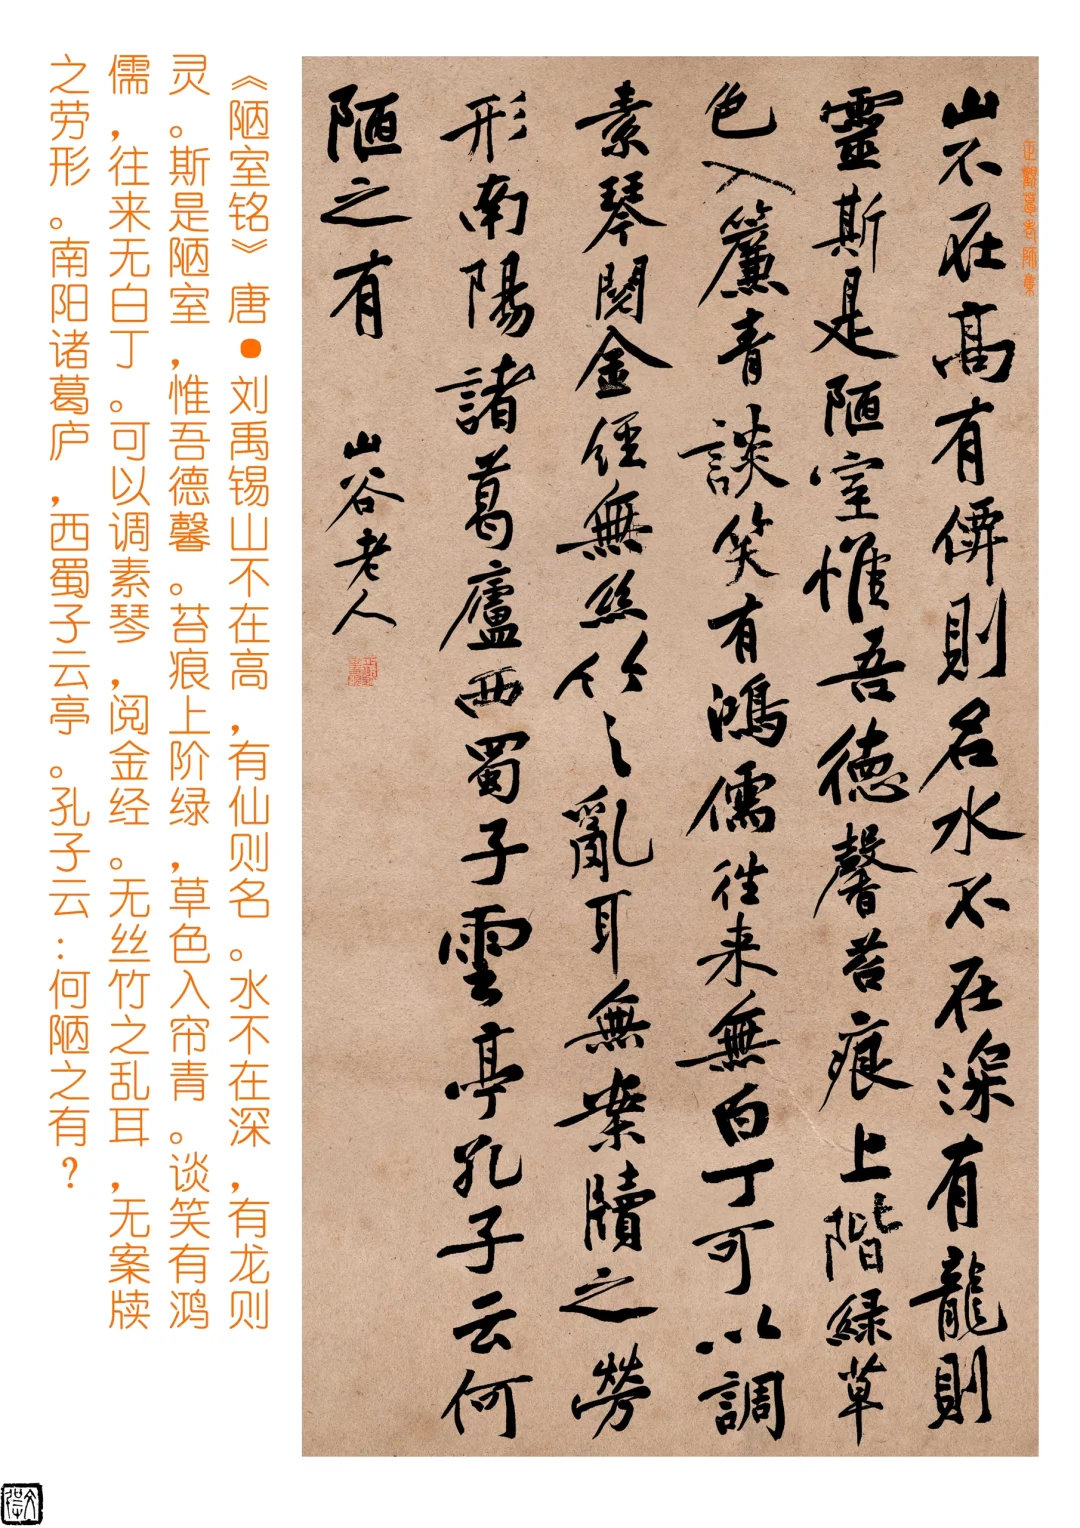 山不在高有僊則名水不在深有龍則
靈斯是陋室惟吾德馨苔痕上階緑草
色入簾青談笑有鴻儒往来無白丁可以調
素琴閱金經無絲竹之亂耳無案牘之勞
形南陽諸葛廬西蜀子雲亭孔子云何
陋之有
山谷老人
《陋室铭》唐●刘禹锡山不在高，有仙则名。水不在深，有龙则
灵。斯是陋室，惟吾德馨。苔痕上阶绿，草色入帘青。谈笑有鸿
儒，往来无白丁。可以调素琴，阅金经。无丝竹之乱耳，无案牍
之劳形。南阳诸葛庐，西蜀子云亭。孔子云：何陋之有？